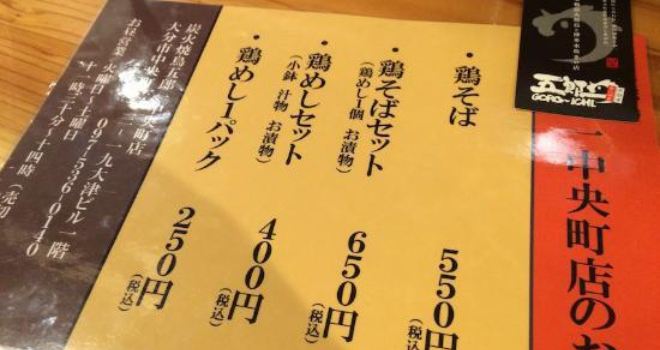 五郎一
GORO-ICHI
一中央町店のお
・鶏そば
550円
(税込)
・鶏そばセット
(鶏めし1個 お漬物)
650円
(税込)
・鶏めしセット
(小鉢 汁物 お漬物)
400円
(税込)
・鶏めし1パック
250円
(税込)
炭火焼鳥五郎一中央町店
大分市中央町
一九大津ビル一階
097-536-0140
お昼営業 火曜日~土曜日
十一時三十分~十四時(売切